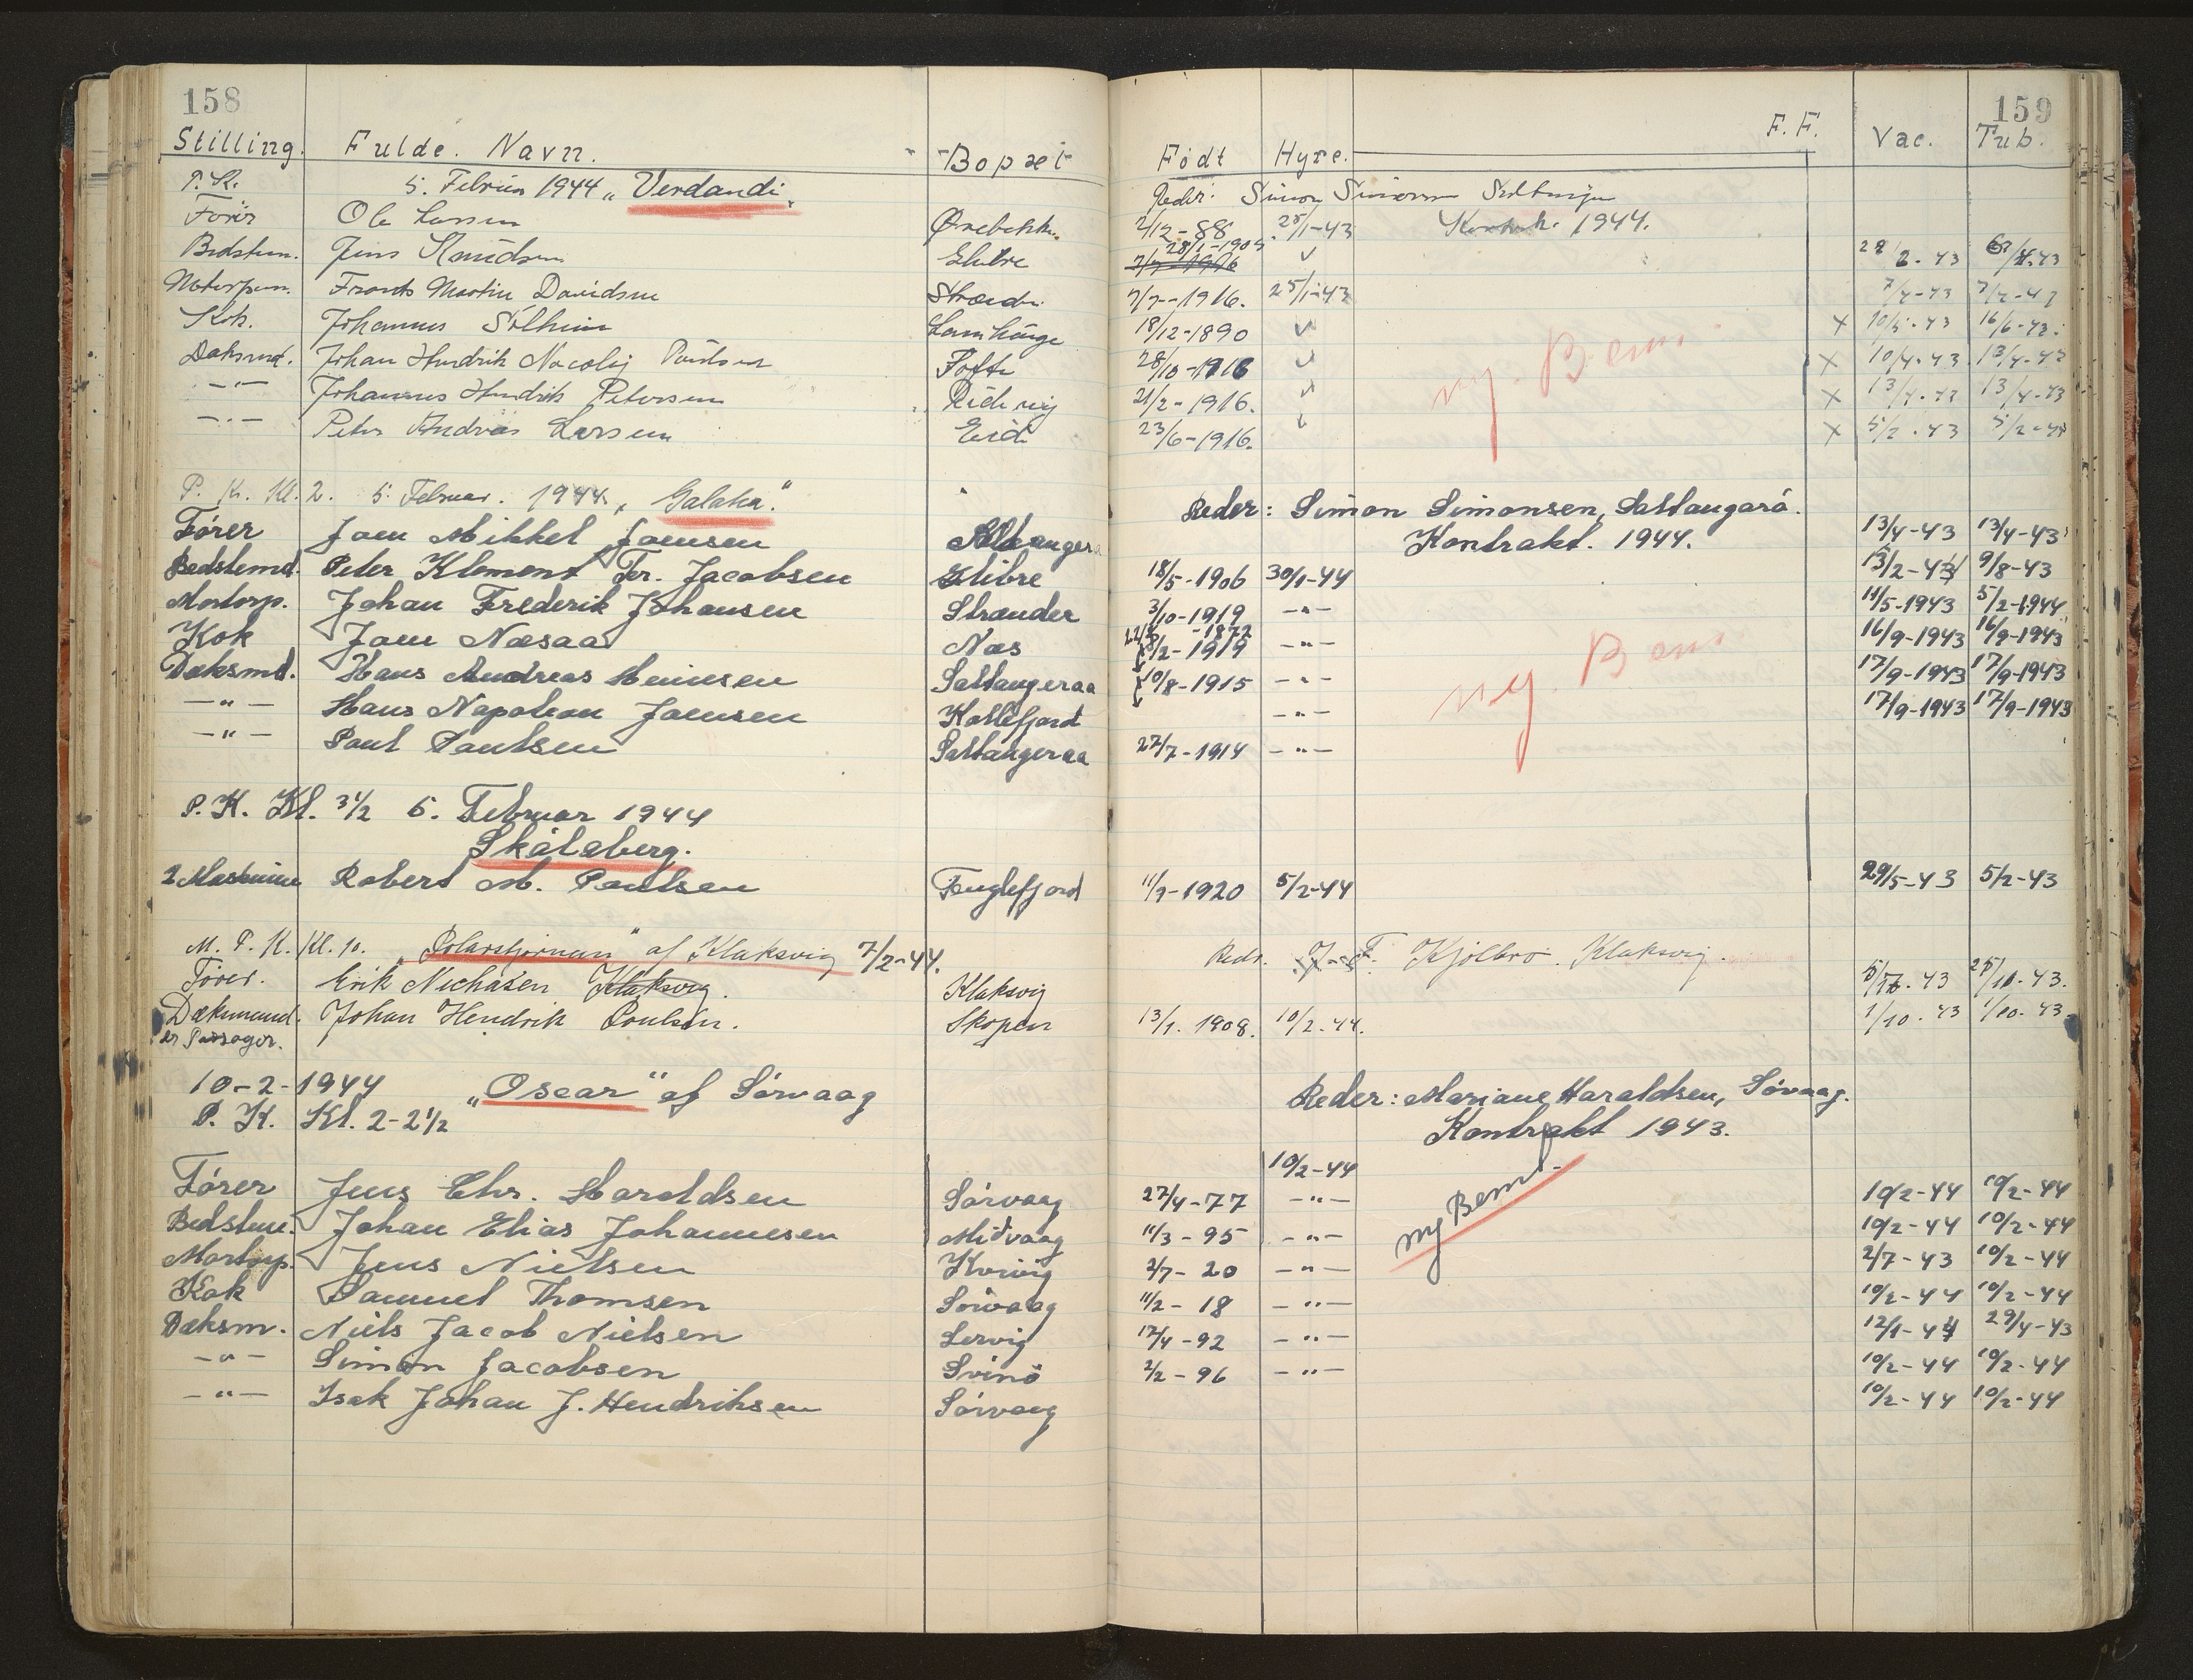 158 159
Stilling. Fulde. Navn. Bopæl Født Hyre. F. F. Vac. Tub.
P. K. 5. Februar 1944 „Verdandi" Reder: Simon Simonsen
Fører Ole Larsen 2/12-88 25/1-43 Kontrakt. 1944.
Bedstem. Jens Knudsen Glibre 28/1-1905 28/2-43
Motorpm. Frants Martin Davidsen Strænder 7/7-1916. 25/1-43 7/4-43
Kok. Johannus Sólheim Lamhauge 18/12-1890 x 10/5-43 16/6-43.
Dæksmd. Johan Hendrik Nicolaj Poulsen 28/10-1916 x 10/4-43 13/4-43
-"- Johannus Hendrik Petersen 21/2-1916. x 13/4-43 13/4-43
-"- Peter Andreas Larsen Eidi 23/6-1916. x 5/2-43 5/2-44
ny. Bem.
P. K. Kl. 2. 5. Februar. 1944. „Galatea." Reder: Simon Simonsen, Saltangará.
Fører Joen Mikkel Joensen Kontrakt. 1944. 13/4-43 13/4-43
Bedstemd. Peter Klement Fr. Jacobsen Glibre 18/5-1906 30/1-44 13/2-43 9/8-43
Mortorp. Johan Frederik Johansen Strænder 3/10-1919 -"- 11/5-1943 5/2-1944
Kok Joen Næsaa Næs -1872 -"- 16/9-1943 16/9-1943
Dæksmd. Hans Andreas Heinesen Saltangeraa 10/8-1915 -"- 17/9-1943 17/9-1943
-"- Hans Napoleon Joensen Kollefjord -"- 17/9-1943 17/9-1943
-"- Poul Poulsen Saltangeraa 27/7-1914 -"-
ny. Bem
P. K. Kl. 3 1/2 5. Februar 1944
Skálaberg.
2 Maskinm Robert M. Poulsen Fuglefjord 11/9-1920 5/2-44 29/5-43 5/2-43
M. P. K. Kl. 10. „Polarstjernen" af Klaksvig 7/2-44. Redr. J. F. Kjølbro. Klaksvig.
Fører. Erik Nichasen Klaksvig. Klaksvig
Dæksmand. Johan Hendrik Poulsen. Skopen 13/1. 1908. 10/2-44. 1/10-43 1/10-43
er Passager.
10-2-1944 „Oscar" af Sørvaag Reder: Mariane Haraldsen, Sørvaag.
P. K. Kl. 2-2 1/2 Kontrakt 1943.
10/2-44
Fører Jens Chr. Haraldsen Sørvaag 27/4-77 -"- 10/2-44 10/2-44
Bedstem. Johan Elias Johannesen Midvaag 11/3-95 -"- 10/2-44 10/2-44
Mortorp. Jens Nielsen Kvivig 2/7-20 -"- 2/7-43 10/2-44
Kok Samuel Thomsen Sørvaag 11/2-18 -"- 10/2-44 10/2-44
Dæksm. Niels Jacob Nielsen Lervig 17/4-92 -"- 12/1-44 29/4-43
-"- Simon Jacobsen Svinö 2/2-96 -"- 10/2-44 10/2-44
-"- Isak Johan J. Hendriksen Sørvaag 10/2-44 10/2-44
ny Bem.